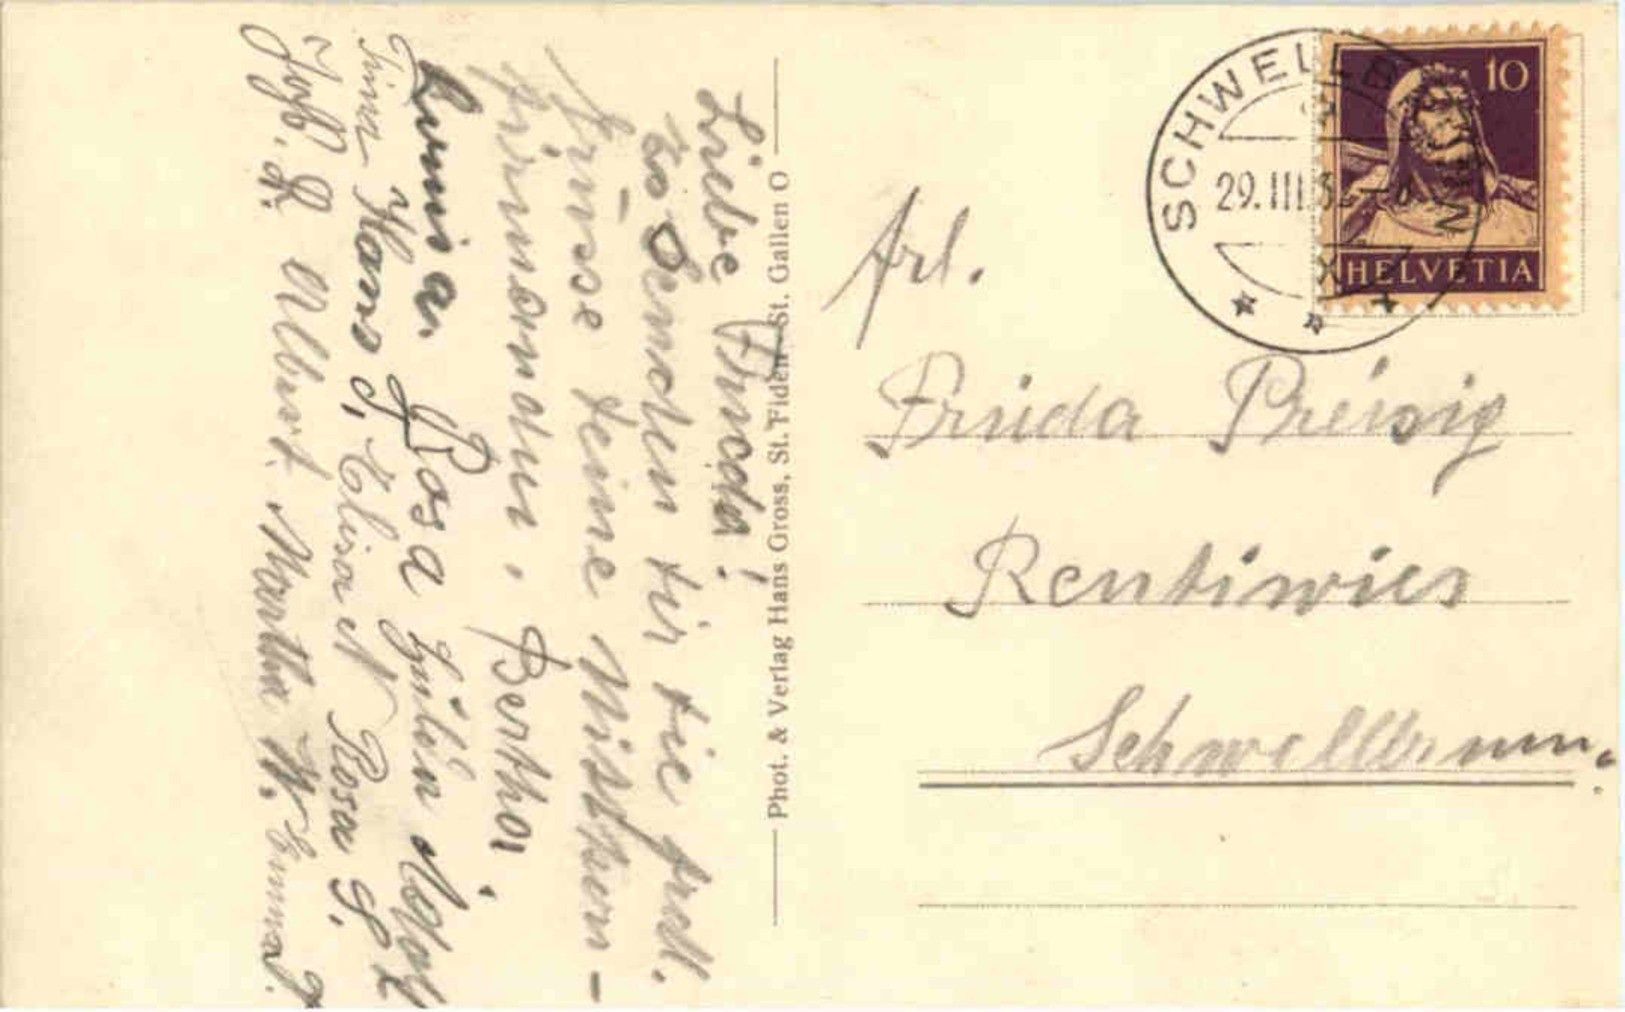 Liebe Frieda!
Es senden dir die frdl.
Grüsse deine Mitturn-
erinnen, Bertha,
Rosa
Hans G, Elisa N Rosa G,
Albert Martha W. Emma
Phot. & Verlag Hans Gross, St. Fiden-St. Gallen O
SCHWELLBRUNN
29.III.
10
HELVETIA
Frl.
Frieda Preisig
Rentiwies
Schwellbrunn.